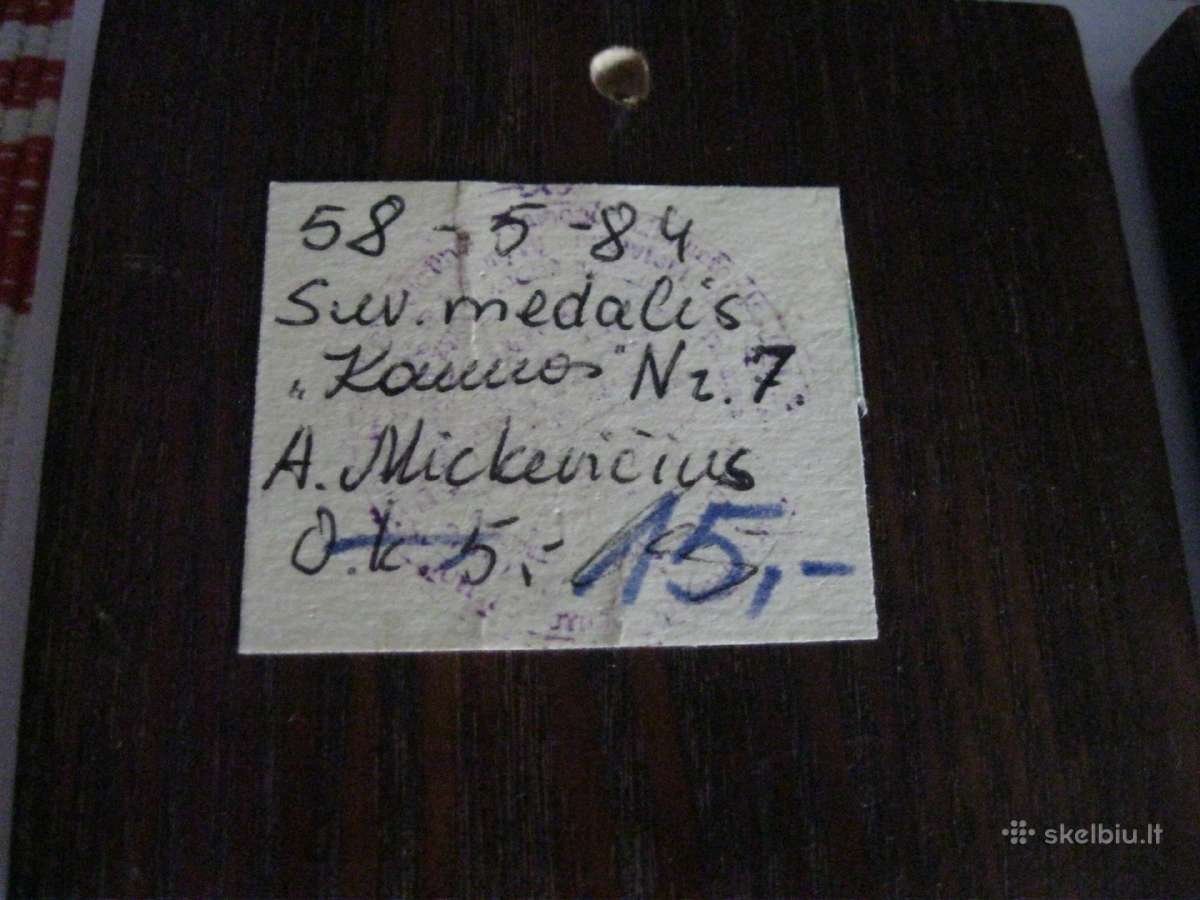 58-5-84
Suv. medalis
„Kaunas" Nr. 7.
A. Mickevičius
O.k. 5,- 15,-
skelbiu.lt